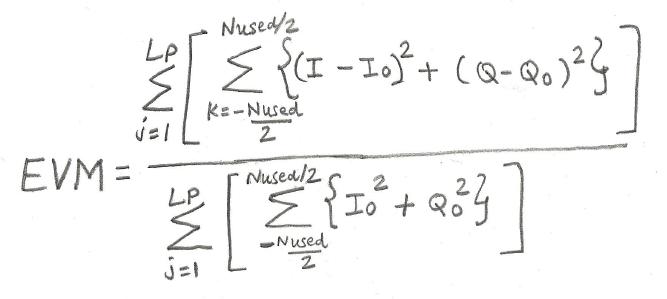 EVM = \frac{\sum_{j=1}^{LP} \left[ \sum_{K=-\frac{Nused}{2}}^{Nused/2} \{(I - I_0)^2 + (Q - Q_0)^2\} \right]}{\sum_{j=1}^{LP} \left[ \sum_{-\frac{Nused}{2}}^{Nused/2} \{I_0^2 + Q_0^2\} \right]}